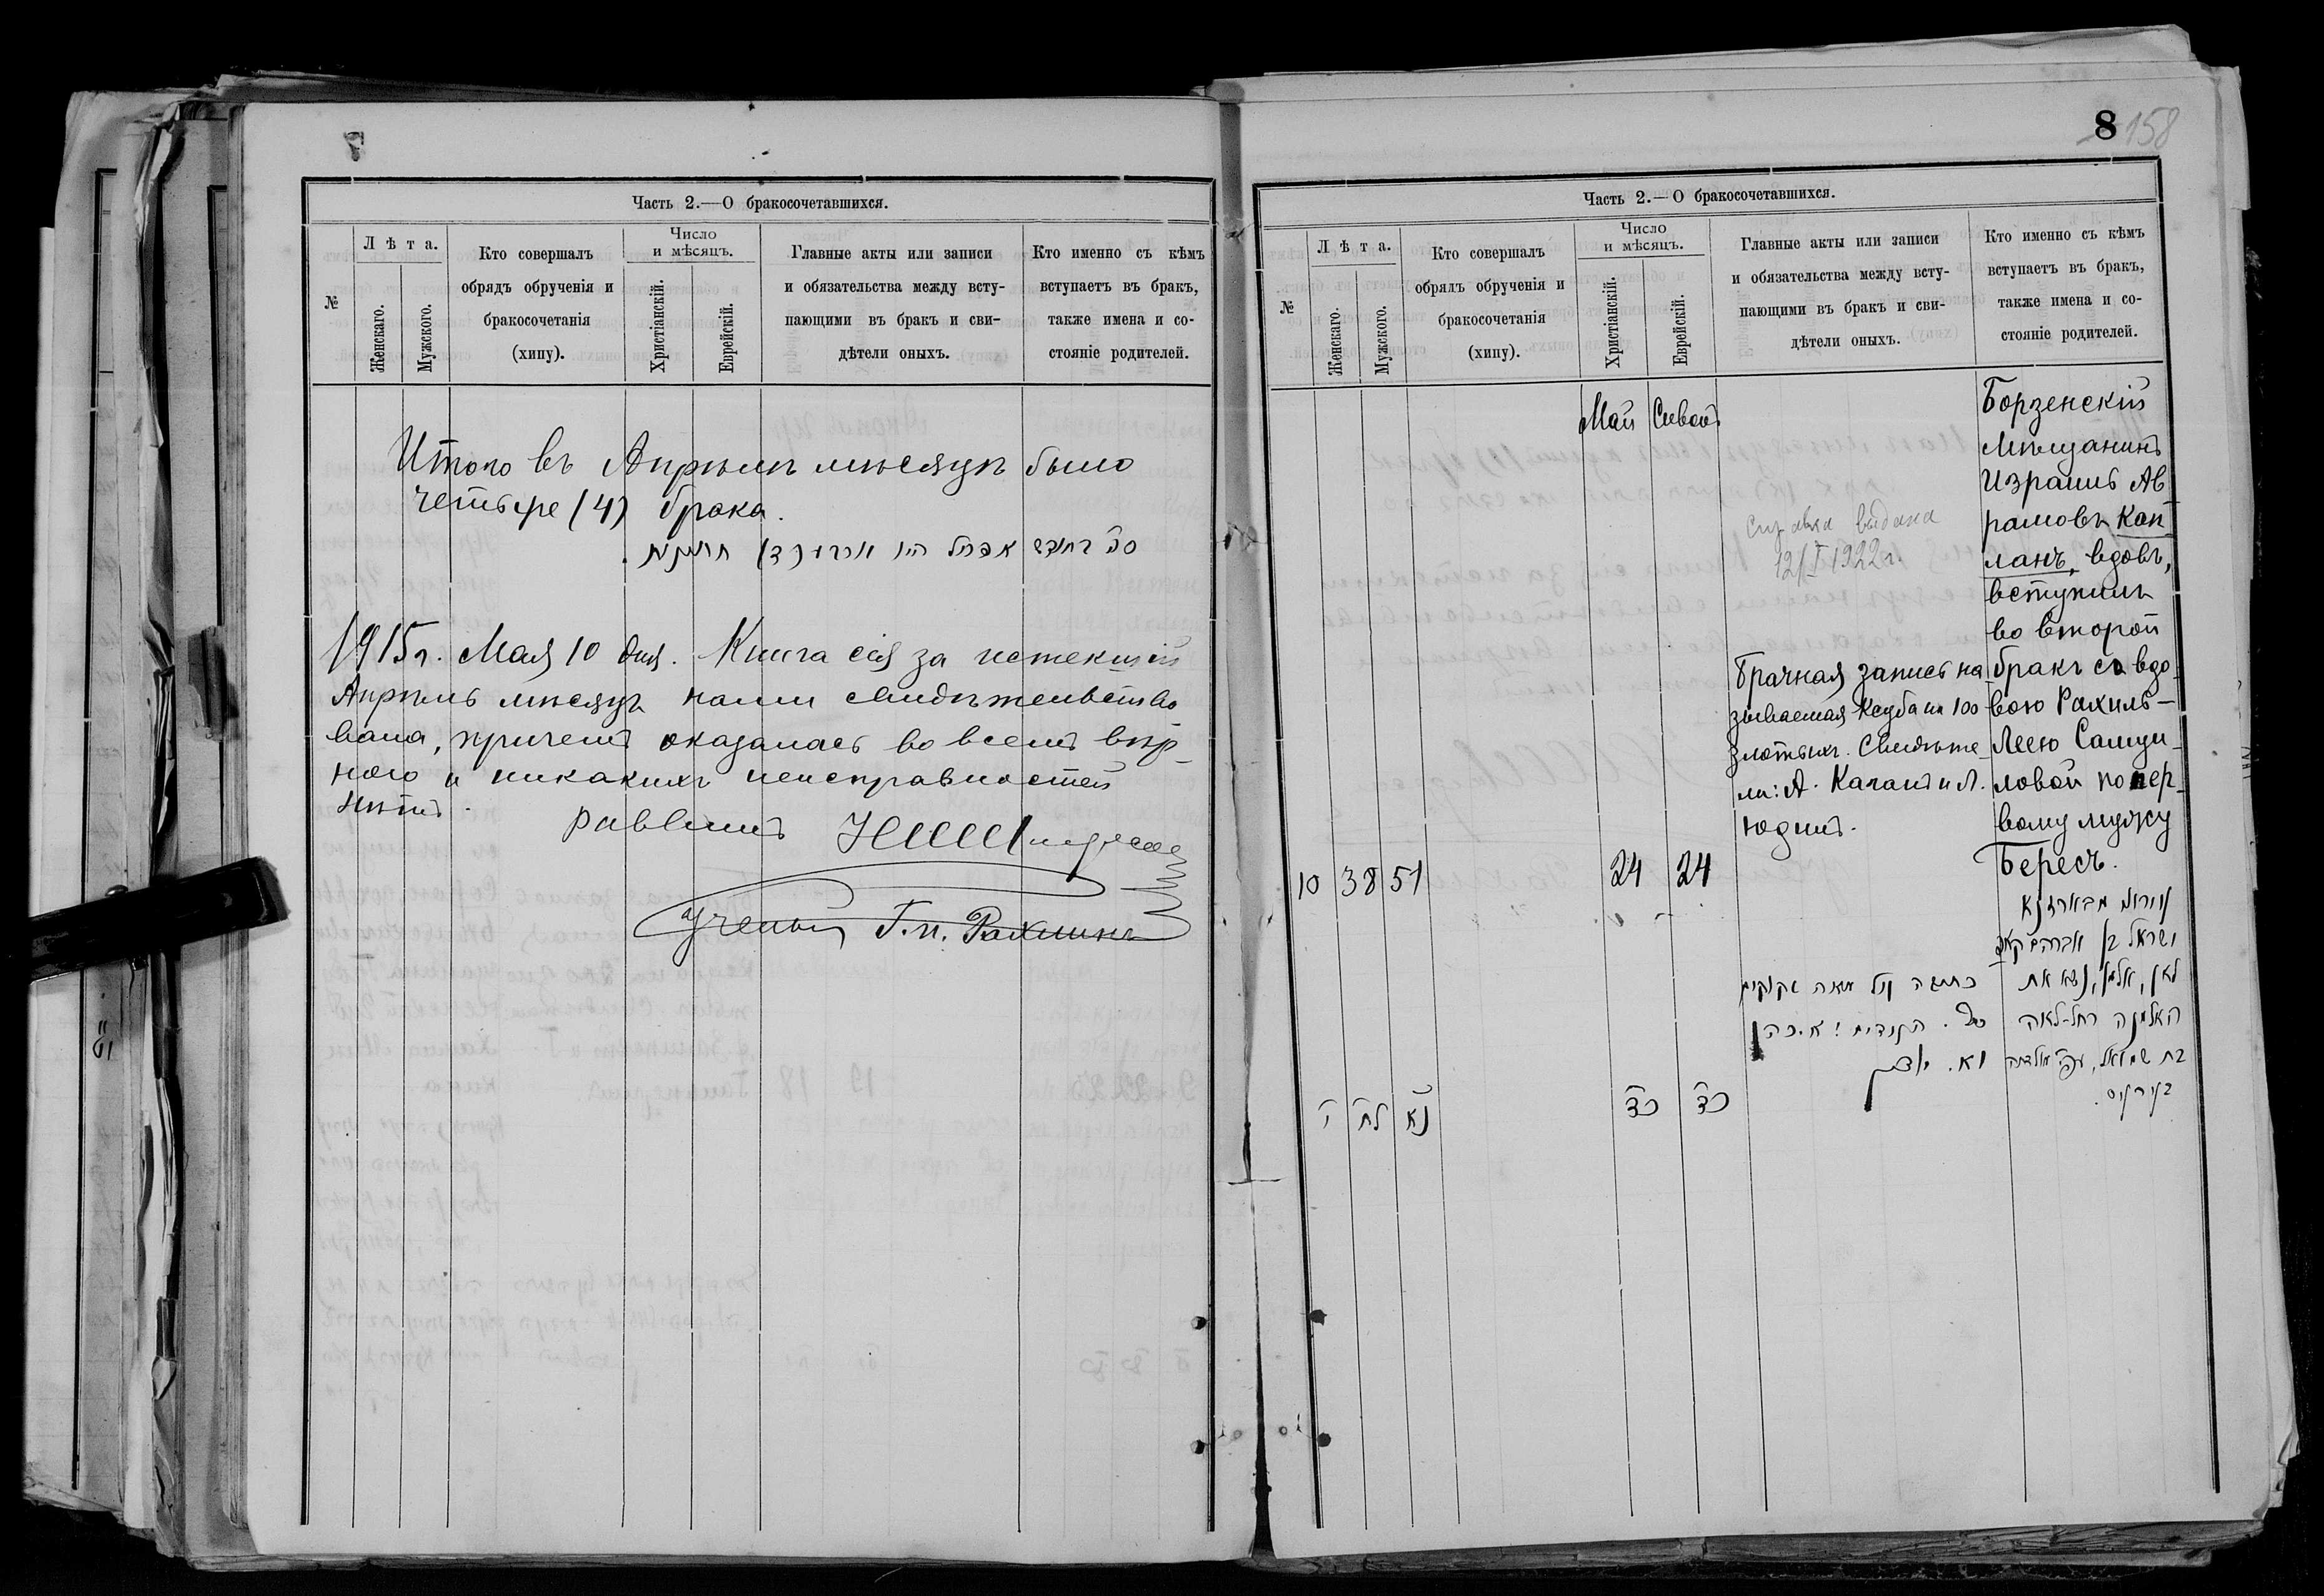 Часть 2.—О бракосочетавшихся.
№
Лѣта.
Женскаго.
Мужского.
Кто совершалъ
обрядъ обрученія и
бракосочетанія
(хипу).
Число
и мѣсяцъ.
Христіанскій.
Еврейскій.
Главные акты или записи
и обязательства между всту-
пающими въ бракъ и сви-
дѣтели оныхъ.
Кто именно съ кѣмъ
вступаетъ въ бракъ,
также имена и со-
стояніе родителей.
Итого въ Апрѣлѣ мѣсяцѣ было
четыре (4) брака.
1915 г. Мая 10 дня. Книга сія за истекшій
Апрѣль мѣсяцъ нами свидѣтельство
вана, причемъ оказалась во всемъ вѣр-
ною и никакихъ неисправностей
нѣтъ.
Раввинъ
Ученый Г. М. Рахлинъ
8 158
Часть 2.—О бракосочетавшихся.
№
Лѣта.
Женскаго.
Мужского.
Кто совершалъ
обрядъ обрученія и
бракосочетанія
(хипу).
Число
и мѣсяцъ.
Христіанскій.
Еврейскій.
Главные акты или записи
и обязательства между всту-
пающими въ бракъ и сви-
дѣтели оныхъ.
Кто именно съ кѣмъ
вступаетъ въ бракъ,
также имена и со-
стояніе родителей.
10
38
51
Май
24
Сивонъ
24
Справка выдана
12/I 1922 г.
Брачная запись на
зываемая Ксуба на 100
злотыхъ. Свидѣте
ли: А. Каганъ и Л.
Юдинъ.
Борзенскій
Мѣщанинъ
Израиль Аб
рамовъ Кап
ланъ, вдовъ,
вступилъ
во второй
бракъ съ вдо-
вою Рахиль-
Леею Самуи-
ловой по пер-
вому мужу
Бересъ.
י
לח
נא
כד
כד
ישראל בן אברהם קאפ
לאן, אלמן, נשא את
האלמנה רחל-לאה
בת שמואל,